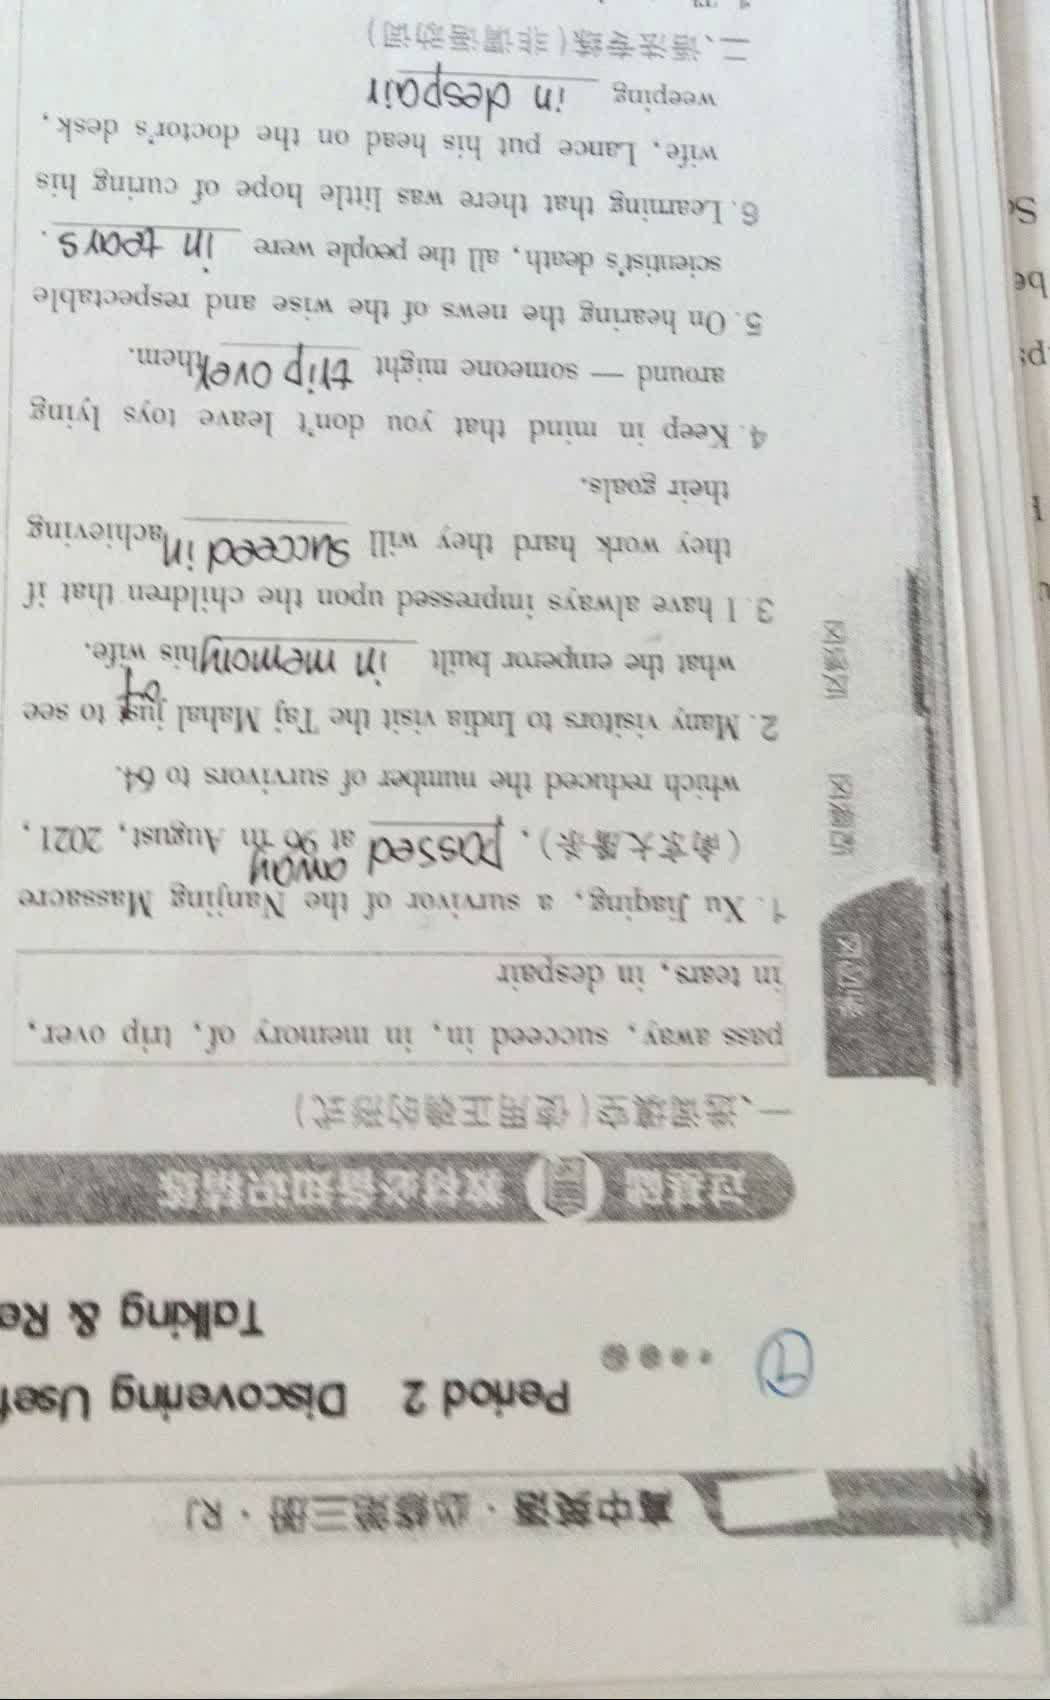 高中英语·必修第三册·RJ
Period 2 Discovering Usef
Talking & Re
过基础 教材必备知识精练
一、选词填空(使用正确的形式)
pass away, succeed in, in memory of, trip over,
in tears, in despair
1. Xu Jiaqing, a survivor of the Nanjing Massacre
(南京大屠杀), passed away at 96 in August, 2021,
which reduced the number of survivors to 64.
2. Many visitors to India visit the Taj Mahal just to see
what the emperor built in memory of his wife.
3. I have always impressed upon the children that if
they work hard they will succeed in achieving
their goals.
4. Keep in mind that you don't leave toys lying
around — someone might trip over them.
5. On hearing the news of the wise and respectable
scientist's death, all the people were in tears.
6. Learning that there was little hope of curing his
wife, Lance put his head on the doctor's desk,
weeping in despair
二、语法专练(非谓语动词)